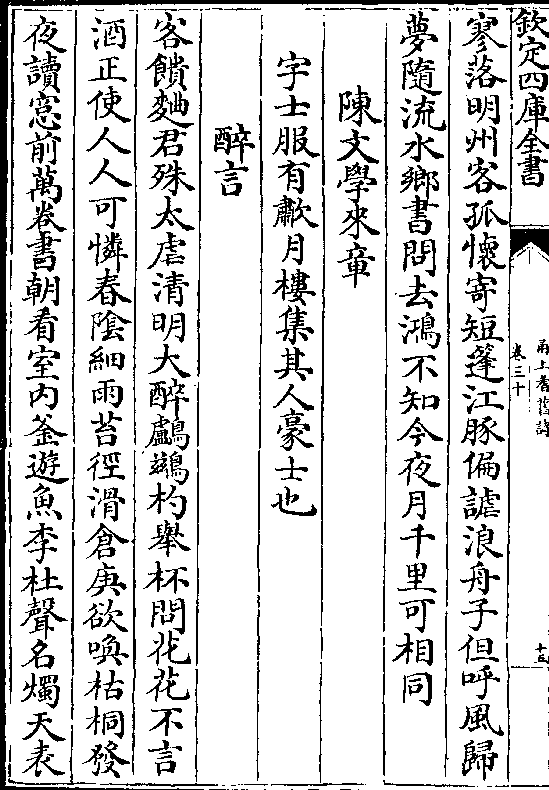 欽定四庫全書
甬上耆舊詩
卷三十
十五
寥落明州客孤懷寄短篷江豚偏謔浪舟子但呼風歸
夢隨流水鄉書問去鴻不知今夜月千里可相同
陳文學來章
字士服有歗月樓集其人豪士也
醉言
客饋麯君殊太虐清明大醉鸕鷀杓舉杯問花花不言
酒正使人人可憐春陰細雨苔徑滑倉庚欲喚枯桐發
夜讀窻前萬卷書朝看室内釜遊魚李杜聲名燭天表